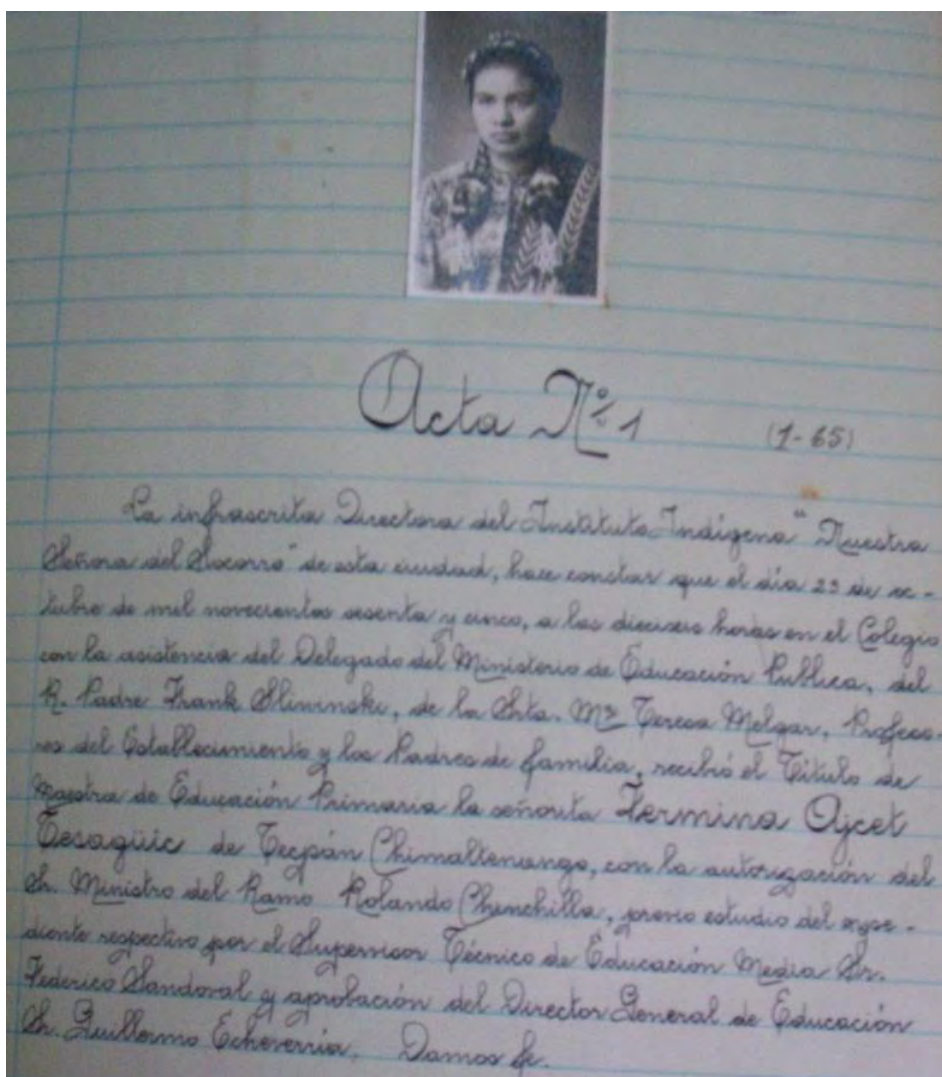 Acta Nº 1 (1-65)
La infrascrita Directora del Instituto Indígena "Nuestra
Señora del Socorro" de esta ciudad, hace constar que el día 23 de oc-
tubre de mil novecientos sesenta y cinco, a las dieciseis horas en el Colegio
con la asistencia del Delegado del Ministerio de Educación Publica, del
R. Padre Frank Slininski, de la Srta. Mª Teresa Melgar, Profeso-
res del Establecimiento y los Padres de familia, recibió el Título de
Maestra de Educación Primaria la señorita Fermina Ajcet
Tecagüic de Tecpán Chimaltenango, con la autorización del
Sr. Ministro del Ramo Rolando Chinchilla, previo estudio del expe-
diente respectivo por el Supervisor Técnico de Educación Media Sr.
Federico Sandoval y aprobación del Director General de Educación
Sr. Guillermo Echeverria. Damos fe.